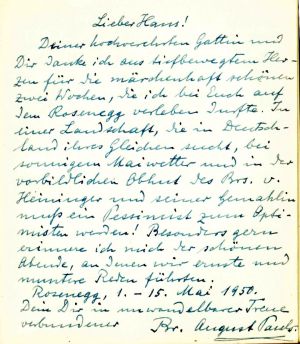 Lieber Hans!
Deiner hochverehrten Gattin und
Dir danke ich aus tiefbewegtem Her-
zen für die märchenhaft schönen
zwei Wochen, die ich bei Euch auf
dem Rosenegg verleben durfte. In
einer Landschaft, die in Deutsch-
land ihres Gleichen sucht, bei
sonnigem Maiwetter und in der
vorbildlichen Obhut des Brs. v.
Heininger und seiner Gemahlin
muß ein Pessimist zum Opti-
misten werden! Besonders gern
erinnere ich mich der schönen
Abende, an denen wir ernste und
muntere Reden führten.
Rosenegg, 1. - 15. Mai 1950.
Dein Dir in unwandelbarer Treue
verbundener Br. August Pauls.